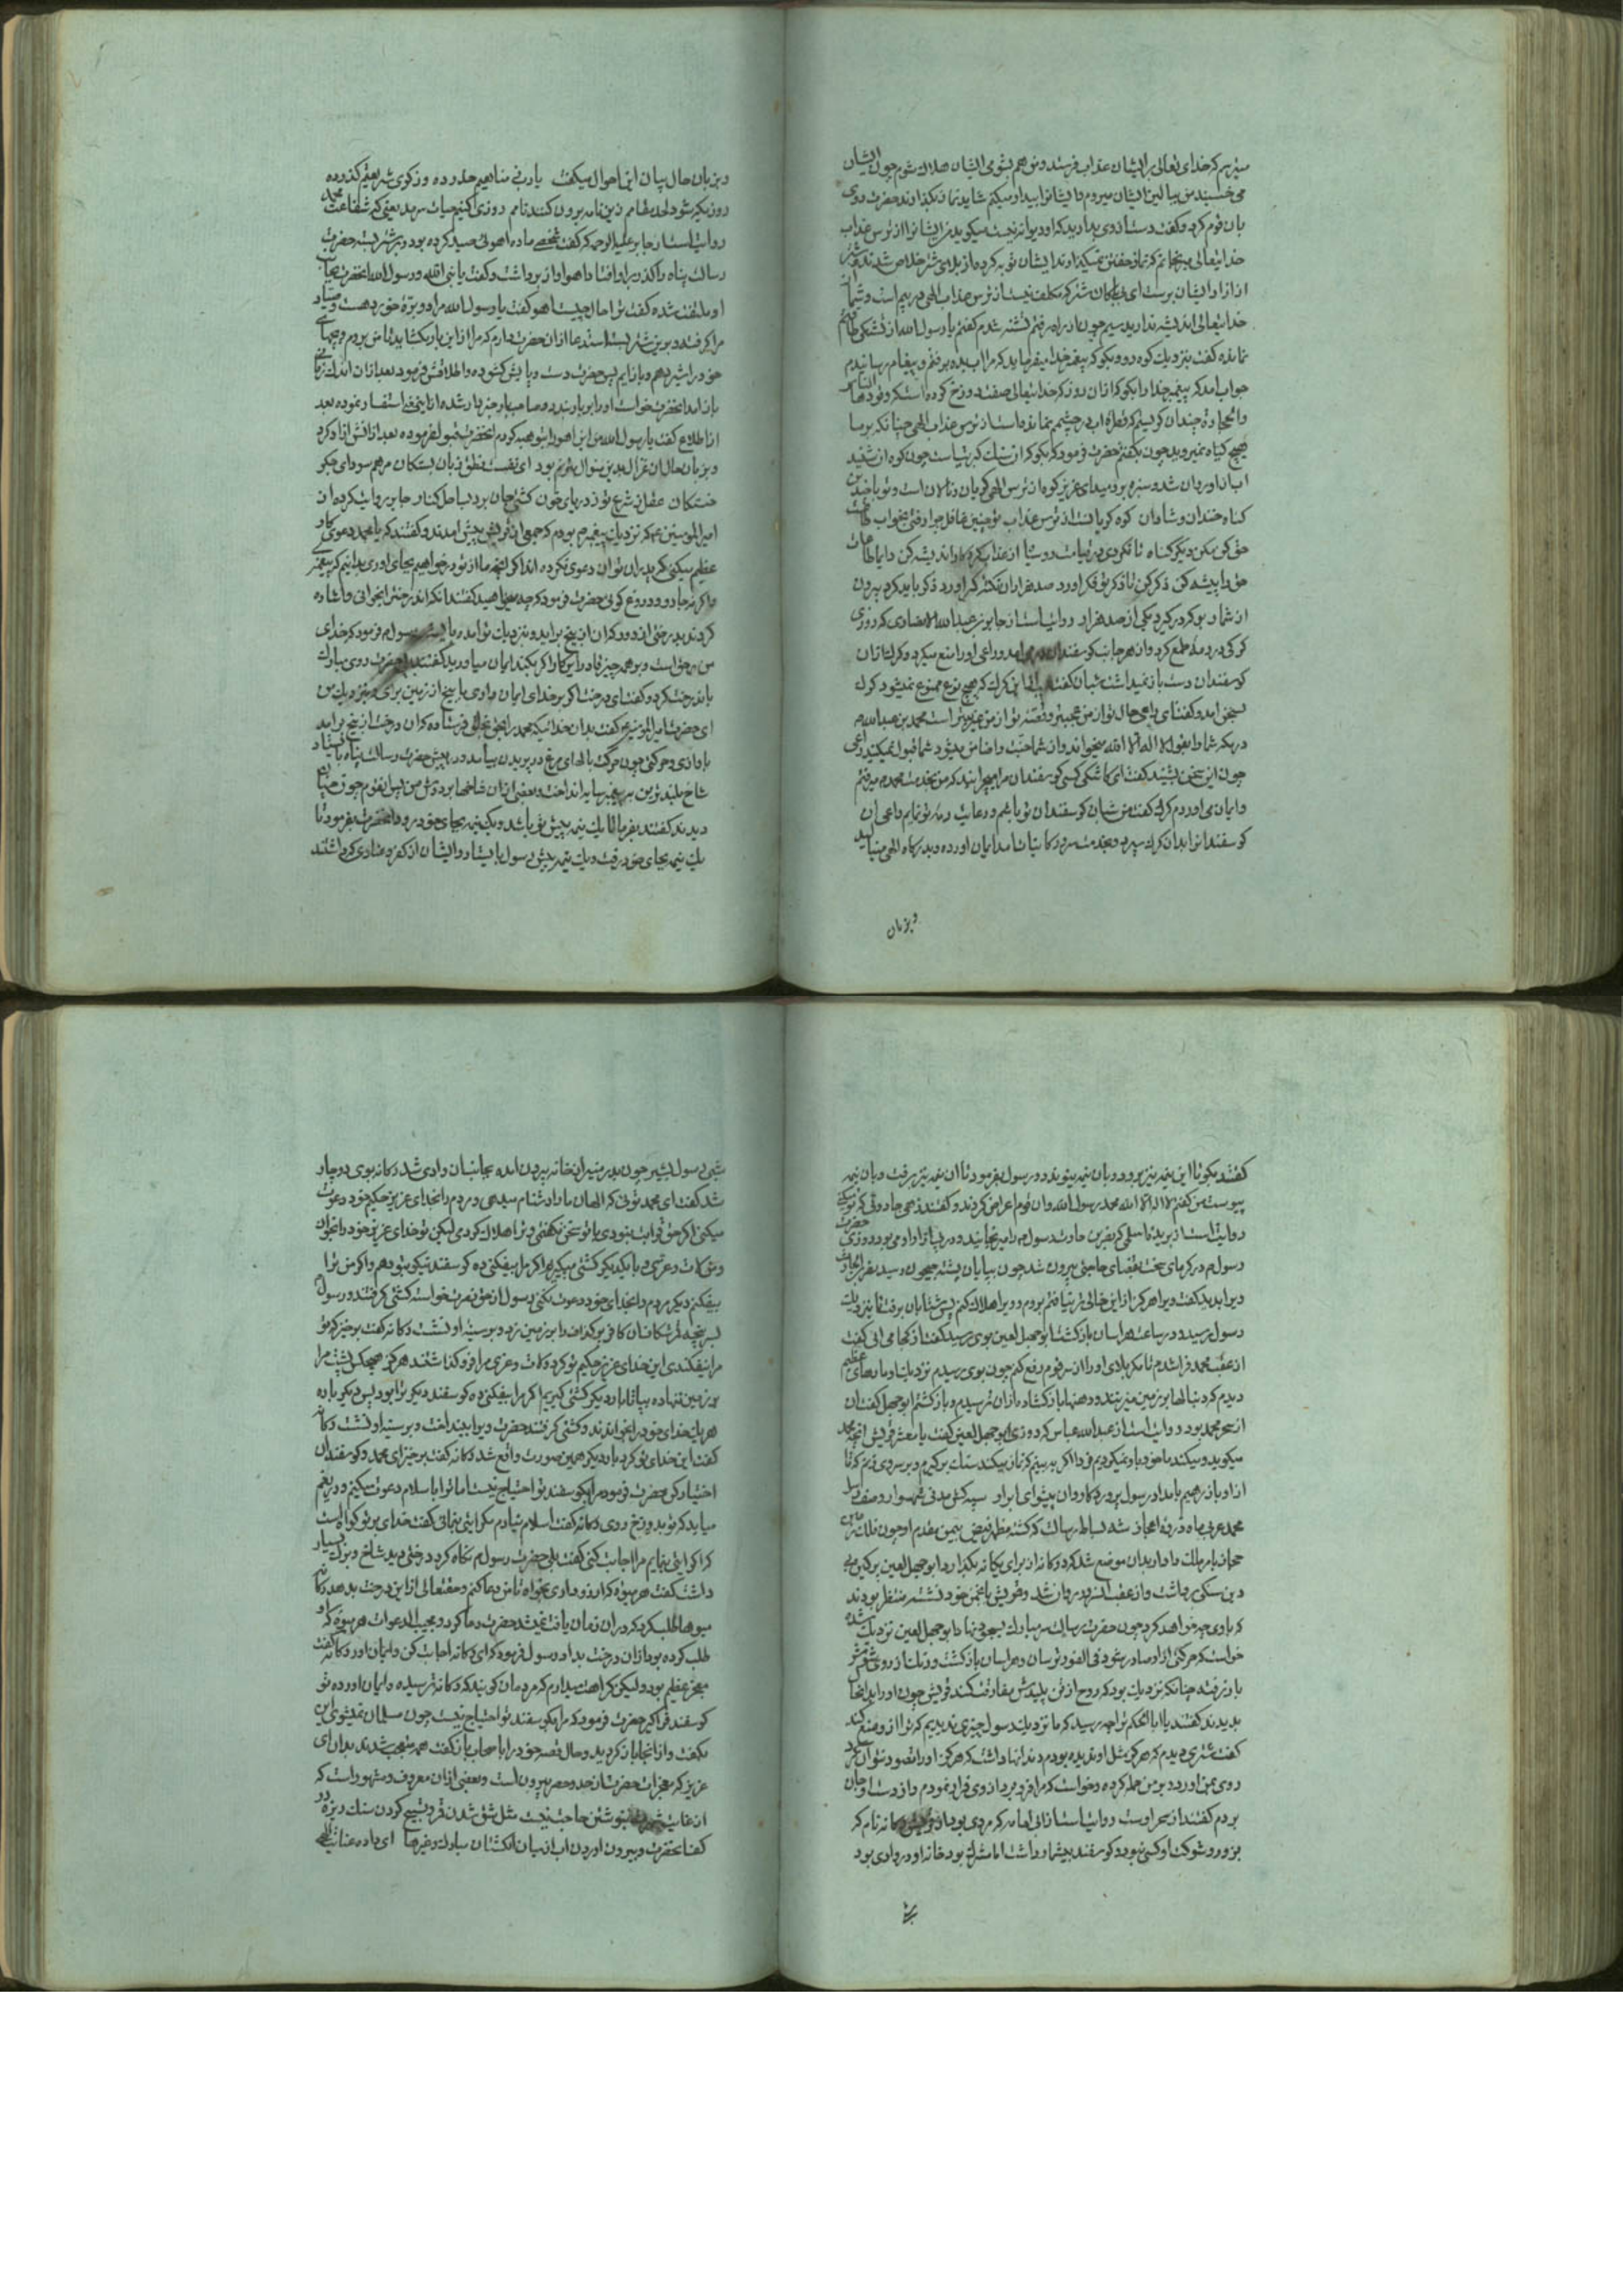 میترسم که خدای تعالی بر ایشان عذاب فرستد و من هم بشومی ایشان هلاک شوم چون ایشان
می خسبند من ببالین ایشان میروم و ایشانرا بیدار میکنم شاید نماز بگذارند حضرت روی
بان قوم کرد و گفت دست ازوی بدارید که او دیوانه نیست میگوید من ایشانرا از ترس عذاب
خدایتعالی میرنجانم که نماز خفتن نمیگذارند ایشان توبه کرده از بلای شتر خلاص شدند و شتر
از ازار ایشان برست ای شتر که مکلف نیست از ترس عذاب الهی در بیم است و شما از
خدایتعالی اندیشه ندارید چون از راه رفتم تشنه شدم گفتم یا رسول الله از تشنگی طاقتم
نمانده گفت بنزدیک کوه رو و بگو که پیغمبر خدا میفرماید که مرا آب بده برفتم و پیغام رسانیدم
جواب امد که پیغمبر خدا را بگو که ازان روز که خدایتعالی صفت دوزخ کرده است که وقودها الناس
والحجارة چندان گریستم که قطره اب در چشمم نمانده است از ترس عذاب الهی چنانکه بر ما
هیچ گیاه نمیروید چون بگفتم حضرت فرمود که بگو که ان سنک کبریتست چون کوه ان شنید
اب ازو روان شد و سبزه بردمید ای عزیز کوه از ترس الهی گریان و نالان است و تو با چندین
گناه خندان و شادان کوه گریانست از ترس عذاب تو چنین غافل چرا رفتی بخواب طاعت
حق کن مکن دیگر گناه تا نگردی در قیامت رو سیاه
حق را پیشه کن ذکر کن تا ذکر تو فکر اورد صد هزاران نکته بکر اورد ذکر باید کرد بیرون
از شمار روایتست از جابر بن عبدالله الانصاری که روزی
گرگی در رمه طمع کرد و ان هرجانب گوسفندان در می امد و راعی او را منع میکرد و گرگ ازان
گوسفندان دست باز نمیداشت شبان گفت این گرگ که بهیچ نوع ممنوع نمیشود گرگ
بسخن امد و گفت ای راعی حال تو از من عجیبتر و قصه تو از من غریبتر است محمد بن عبدالله ص
در مکه شما را بقول لا اله الا الله میخواند و ان شما جنت را ضامن میشود شما قبول نمیکنید راعی
چون این سخن بشنید گفت ای کاشکی کسی گوسفندان مرا میچرانید که من بخدمت محمد ص میرفتم
و ایمان می اوردم گرگ گفت من شبان گوسفندان تو باشم و رعایت رمه تو نمایم راعی ان
گوسفندانرا بدان گرگ سپرده و بخدمت سرور کاینات امد ایمان اورده و بدرگاه الهی مینالید
وبزبان
وبزبان حال بیان این احوال میگفت یا رب
روایت است از جابر علیه الرحمه که گفت شخصی ماده اهوئی صید کرده بود و بر شتر بسته حضرت
رسالت پناه را گذر برو افتاد اهو اواز برداشت و گفت یا نبی الله و رسول الله انحضرت بجانب
او ملتفت شده گفت ترا حال چیست اهو گفت یا رسول الله مرا دو برۀ خورد هست و صیاد
مرا گرفته و برین شتر بسته استدعا ازان حضرت دارم که مرا از این بار بگشاید تا من بروم و بچها
خود را شیر دهم و باز ایم پس حضرت دست و پایش گشوده و اطلاقش فرمود بعد ازان اندک زمانی
باز امد انحضرت خواست او را بر بار بندد و صاحب بار خبردار شده ازین معنی استفسار نموده بعد
از اطلاع گفت یا رسول الله من این اهو را بتو هبه کردم انحضرت قبول فرموده بعد ازانش ازاد کرد
وبزبان حال ان غزال بدین منوال مترنم بود ای نفست نطق زبان بستکان مرهم سودای جگر
خستگان عقل ز شرع تو ز دریای خون کشتی جان برد بساحل کنار جابر روایت کرده از
امیر المومنین ع که نزدیک پیغمبر ص بودم که جمعی از قریش پیش امدند و گفتند که یا محمد دعوی کار
عظیم میکنی که پدران تو ان دعوی نکرده اند اگر انچه ما از تو درخواهیم بجای اوری بدانیم که پیغمبری
و اگرنه جادو و دروغ گوئی حضرت فرمود که چه میخواهید گفتند انکه اندرخترا بخوانی و اشاره
کردند بدرختی از دور که ان از بیخ براید و نزدیک تو اید و بایستد رسول ص فرمود که خدای
من بر حق است و بر همه چیز قادر این کار را اگر بکند ایمان میاورید گفتند بلی حضرت روی مبارک
باندرخت کرد و گفت ای درخت اگر بر خدای ایمان داری با بیخ از زمین برای و بنزدیک من
ای حضرت امیر المومنین ع گفت بدان خدائیکه محمد را بحق بخلق فرستاده که ان درخت از بیخ برامد
با وازی و حرکتی چون حرکت بالهای مرغ در پریدن بیامد و در پیش حضرت رسالت پناه بایستاد
شاخ بلندترین بر سر پیغمبر سایه انداخت و بعضی ازان شاخها بر دوش من پس انقوم چون چنان
دیدند گفتند بفرما تا یک نیمه پیش تو باشد و یک نیمه بجای خود رود انحضرت بفرمود تا
یک نیمه بجای خود رفت و یک نیمه پیش رسول بایستاد و ایشان از کفر و عنادی که داشتند
گفتند بگو تا این نیمه نیز برود و بان نیمه پیوندد و رسول بفرمود تا ان نیمه نیز برفت و بان نیمه
پیوست من گفتم لا اله الا الله محمد رسول الله و ان قوم اعراض کردند و گفتند زهی جادوئی که تو میکنی
رسول ص در گرمای سخت بقضای حاجتی بیرون شد چون بپایان پشته جیحون رسید نضر ابن حارث
ویرا بدید گفت ویرا هرگز ازین خالی تر نیافتم بروم و ویرا هلاک کنم پس شتابان برفت تا بنزدیک
رسول رسید و در ساعت هراسان بازگشت ابوجهل لعین بوی رسید گفت از کجا می ائی گفت
از عقب محمد فرا شدم تا مگر بلای او را از سر قوم رفع کنم چون بوی رسیدم نزدیک او مارهای عظیم
دیدم که دنبالها بر زمین میزنند و دهنها باز گشاده ازان ترسیدم و بازگشتم ابوجهل گفت ان
از سحر محمد بود و روایت است از عبدالله عباس که روزی ابوجهل لعین گفت یا معشر قریش انچه محمد
میگوید و میکند ما خود باور نمیکردیم فردا اگر به بینم که نماز میکند سنگ برگیرم و بر سر وی زنم که تا
ازار باز رهیم بامداد رسول پروردگار و ان پیشوای ابرار سپه کش مدنی شهسوار وصف رسل
محمد عربی ماه ذروۀ اعجاز شد بساط رسالت که گشته مظهر فیض بیمن مقدم او چون فلک
دین سنگی برداشت و از عقب انسرور روان شد و قریش بانجمن خود نشسته منتظر بودند
که با وی چه خواهد کرد چون حضرت رسالت سر مبارک بسجود نهاد ابوجهل لعین نزدیک شده
خواست که حرکتی ازو صادر شود فی الفور ترسان و هراسان بازگشت و رنک از روی
باد رفته چنانکه نزدیک بود که روح از تن پلیدش مفارقت کند قریش چون او را بدانحال
بدیدند گفتند یا ابا الحکم ترا چه رسید که ما نزدیک رسول چیزی ندیدیم که ترا ازو منع کند
گفت شتری دیدم که هرگز مثل او ندیده بودم دندانها داشت که هرگز او را تصور نتوان کرد
روی بمن اورد و بر من حمله کرده و خواست که مرا فرو برد از وی فرار نمودم و از دست او جان
بردم گفتند از سحر اوست روایت است از ابی امامه که مردی بود از قریش رکانه نام که
بزور و شوکت او کسی نبود و گوسفند بیشمار داشت اما مشرک بود خانه او در وادی بود
شبی
شبی رسول بشیر چون بدر منیر از خانه بیرون امده بجانب ان وادی شد رکانه بوی دوچار
شد گفت ای محمد توئی که الهان ما را دشنام میدهی و مردم را بخدای عزیز حکیم خود دعوت
میکنی اگر حق قرابت نبودی با تو سخن نگفتمی و ترا هلاک کردمی لیکن تو خدای عزیز خود را بخوان
و من لات و عزی و با یکدیگر کشتی میگیریم اگر مرا بیفکنی ده گوسفند نیکو بتو دهم و اگر من ترا
بیفکنم دیگر مردم را بخدای خود دعوت نکنی رسول از حق نصرت خواست کشتی گرفتند و رسول
بسرپنجه مژگان ان کافر بوکذاف را بر زمین زد و بر سینه او نشست رکانه گفت برخیز که تو
مرا نیفکندی این خدای عزیز حکیم تو کرد و لات و عزی مرا فرو گذاشتند هرگز هیچکس پشت مرا
بر زمین ننهاده بیا تا بار دیگر کشتی گیریم اگر مرا بیفکنی ده گوسفند دیگر ترا بود پس دیگر باره
هر یک خدای خود را خواندند و کشتی گرفتند حضرت ویرا بینداخت و بر سینه او نشست رکانه
گفت این خدای تو کرد بار دیگر همین صورت واقع شد رکانه گفت برخیز ای محمد و گوسفندان
اختیار کن حضرت فرمود مرا بگوسفند تو احتیاج نیست اما ترا باسلام دعوت میکنم و دریغم
میاید که تو بدوزخ روی رکانه گفت اسلام نیارم مگر ایتی بنمائی گفت خدای بر تو گواهست
که اگر ایتی بنمایم مرا اجابت کنی گفت بلی حضرت رسول ص نگاه کرد درختی دید شاخ و برک بسیار
داشت گفت هر میوه که ارزو داری بخواه تا من دعا کنم و حقتعالی ازاین درخت بدهد رکانه
میوها طلب کرد که در ان زمان یافت نمیشد حضرت دعا کرد و مجیب الدعوات هر میوه که او
طلب کرده بود ازان درخت بداد رسول فرمود که ای رکانه اجابت کن و ایمان اور رکانه گفت
معجز عظیم بود ولیکن کراهت میدارم که مردمان گویند که رکانه ترسیده و ایمان اورده تو
گوسفند فراگیر حضرت فرمود که مرا بگوسفند تو احتیاج نیست چون مسلمان نمیشوی این
بگفت و از انجا باز گردید و حال قصه خود را با اصحاب باز گفت همه متعجب شدند بدان ای
عزیز که معجزات حضرت از حد و حصر بیرون است و بعضی ازان معروف و مشهور است که
از غایت شهرت بنوشتن حاجت نیست مثل شق شدن قمر و تسبیح کردن سنک ریزه در
کف انحضرت و بیرون اوردن اب از میان انگشتان مبارک و غیرها ای داده عنایت